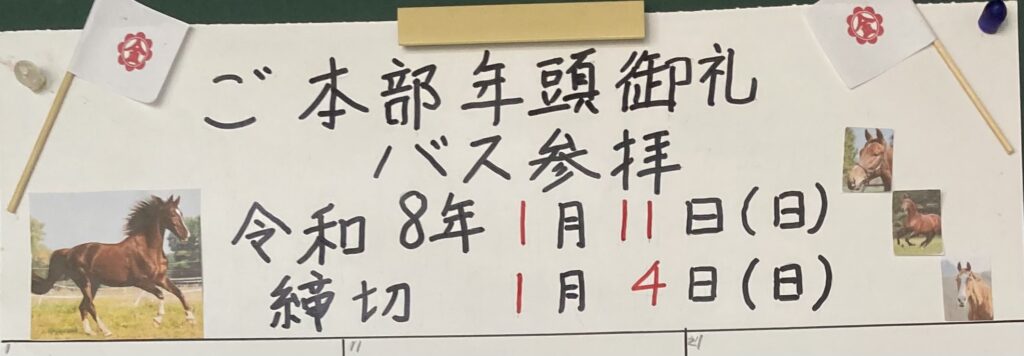 ご本部年頭御礼
バス参拝
令和8年 1月11日(日)
締切 1月 4日(日)
1 11 21